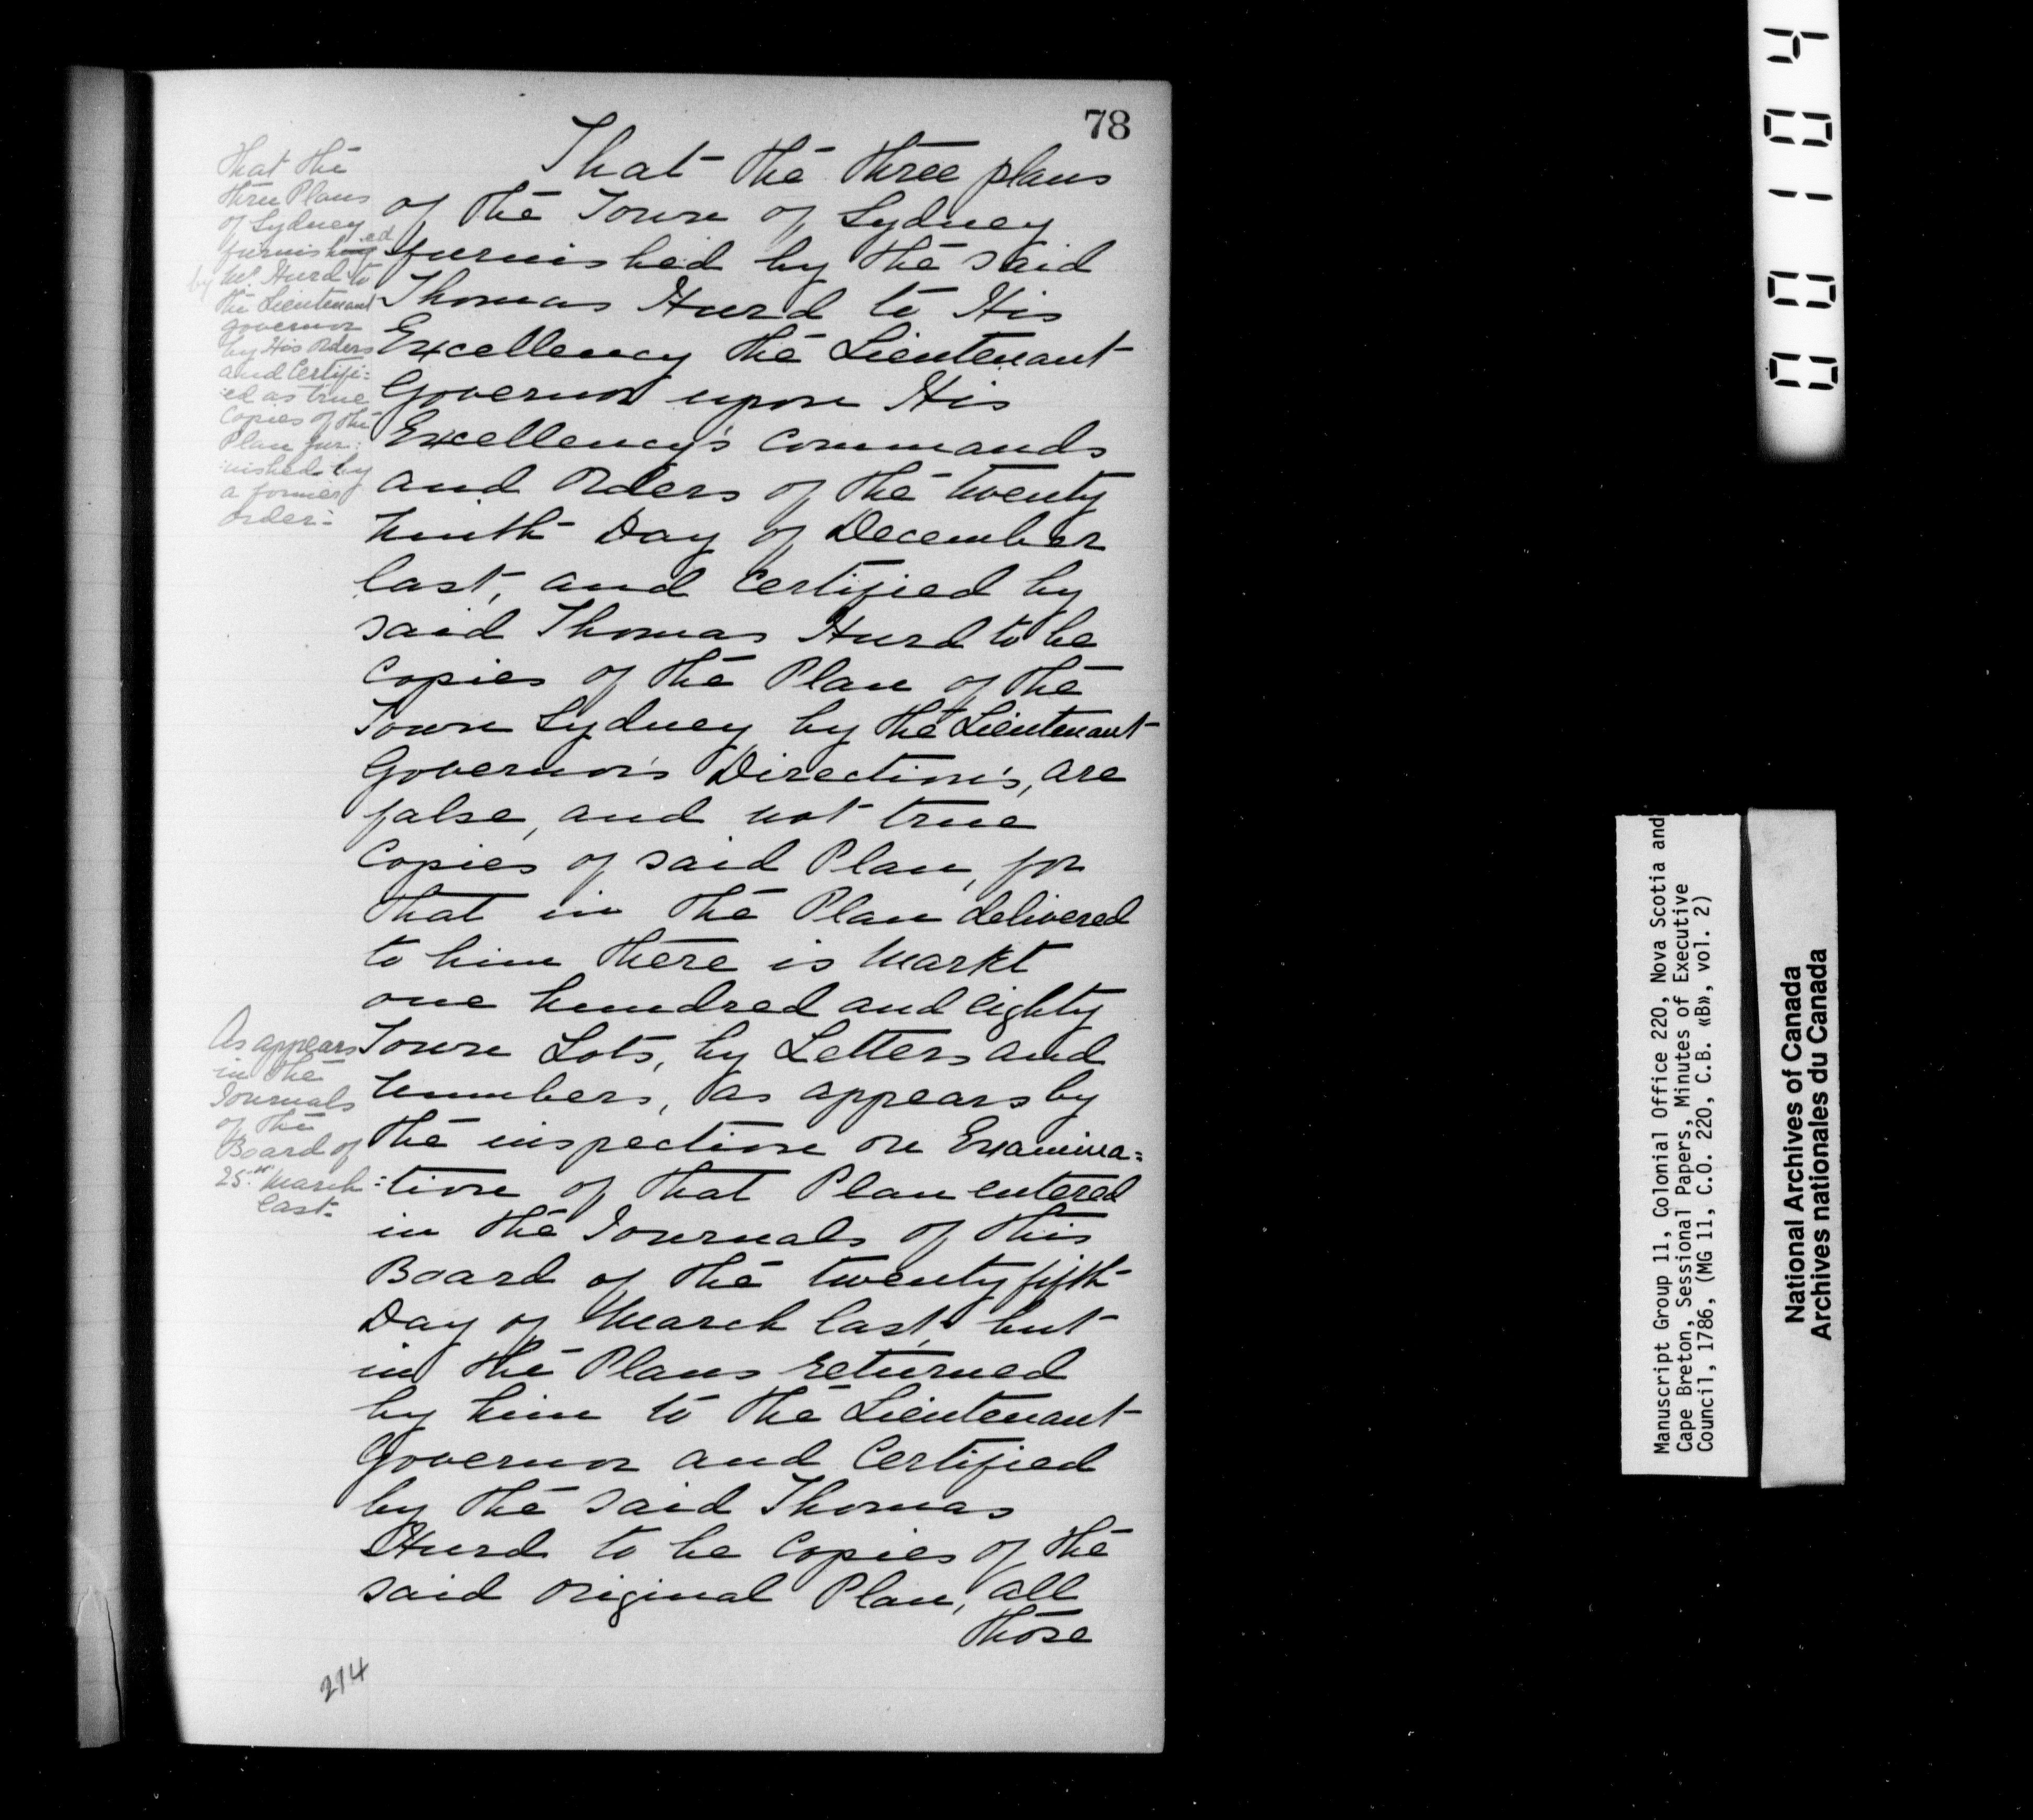 78
That the
three Plans
of Sydney
furnishing ed
by Mr. Hurd to
the Lieutenant
Governor
by His Orders
and Certifi=
:ed as true
Copies of the
Plan fur:
:nished by
a former
order:-
That the three plans
of the Town of Sydney
furnished by the said
Thomas Hurd to His
Excellency the Lieutenant
Governor upon His
Excellency's Commands
and Orders of the twenty
ninth Day of December
last, and Certified by
said Thomas Hurd to be
Copies of the Plan of the
Town Sydney by the Lieutenant
Governor's Direction's, are
false, and not true
Copies of said Plan, for
that in the Plan delivered
to him there is Markt
one hundred and eighty
Town Lots, by Letters and
Numbers, as appears by
the inspection on Examina=
:tion of that Plan entered
in the Journals of this
Board of the twenty fifth
Day of March last, but
in the Plans returned
by him to the Lieutenant
Governor and Certified
by the said Thomas
Hurd to be Copies of the
said Original Plan, all
those
As appears
in the
Journals
of the
Board of
25th March
last-
214
00104
Manuscript Group 11, Colonial Office 220, Nova Scotia and
Cape Breton, Sessional Papers, Minutes of Executive
Council, 1786, (MG 11, C.O. 220, C.B. «B», vol. 2)
National Archives of Canada
Archives nationales du Canada